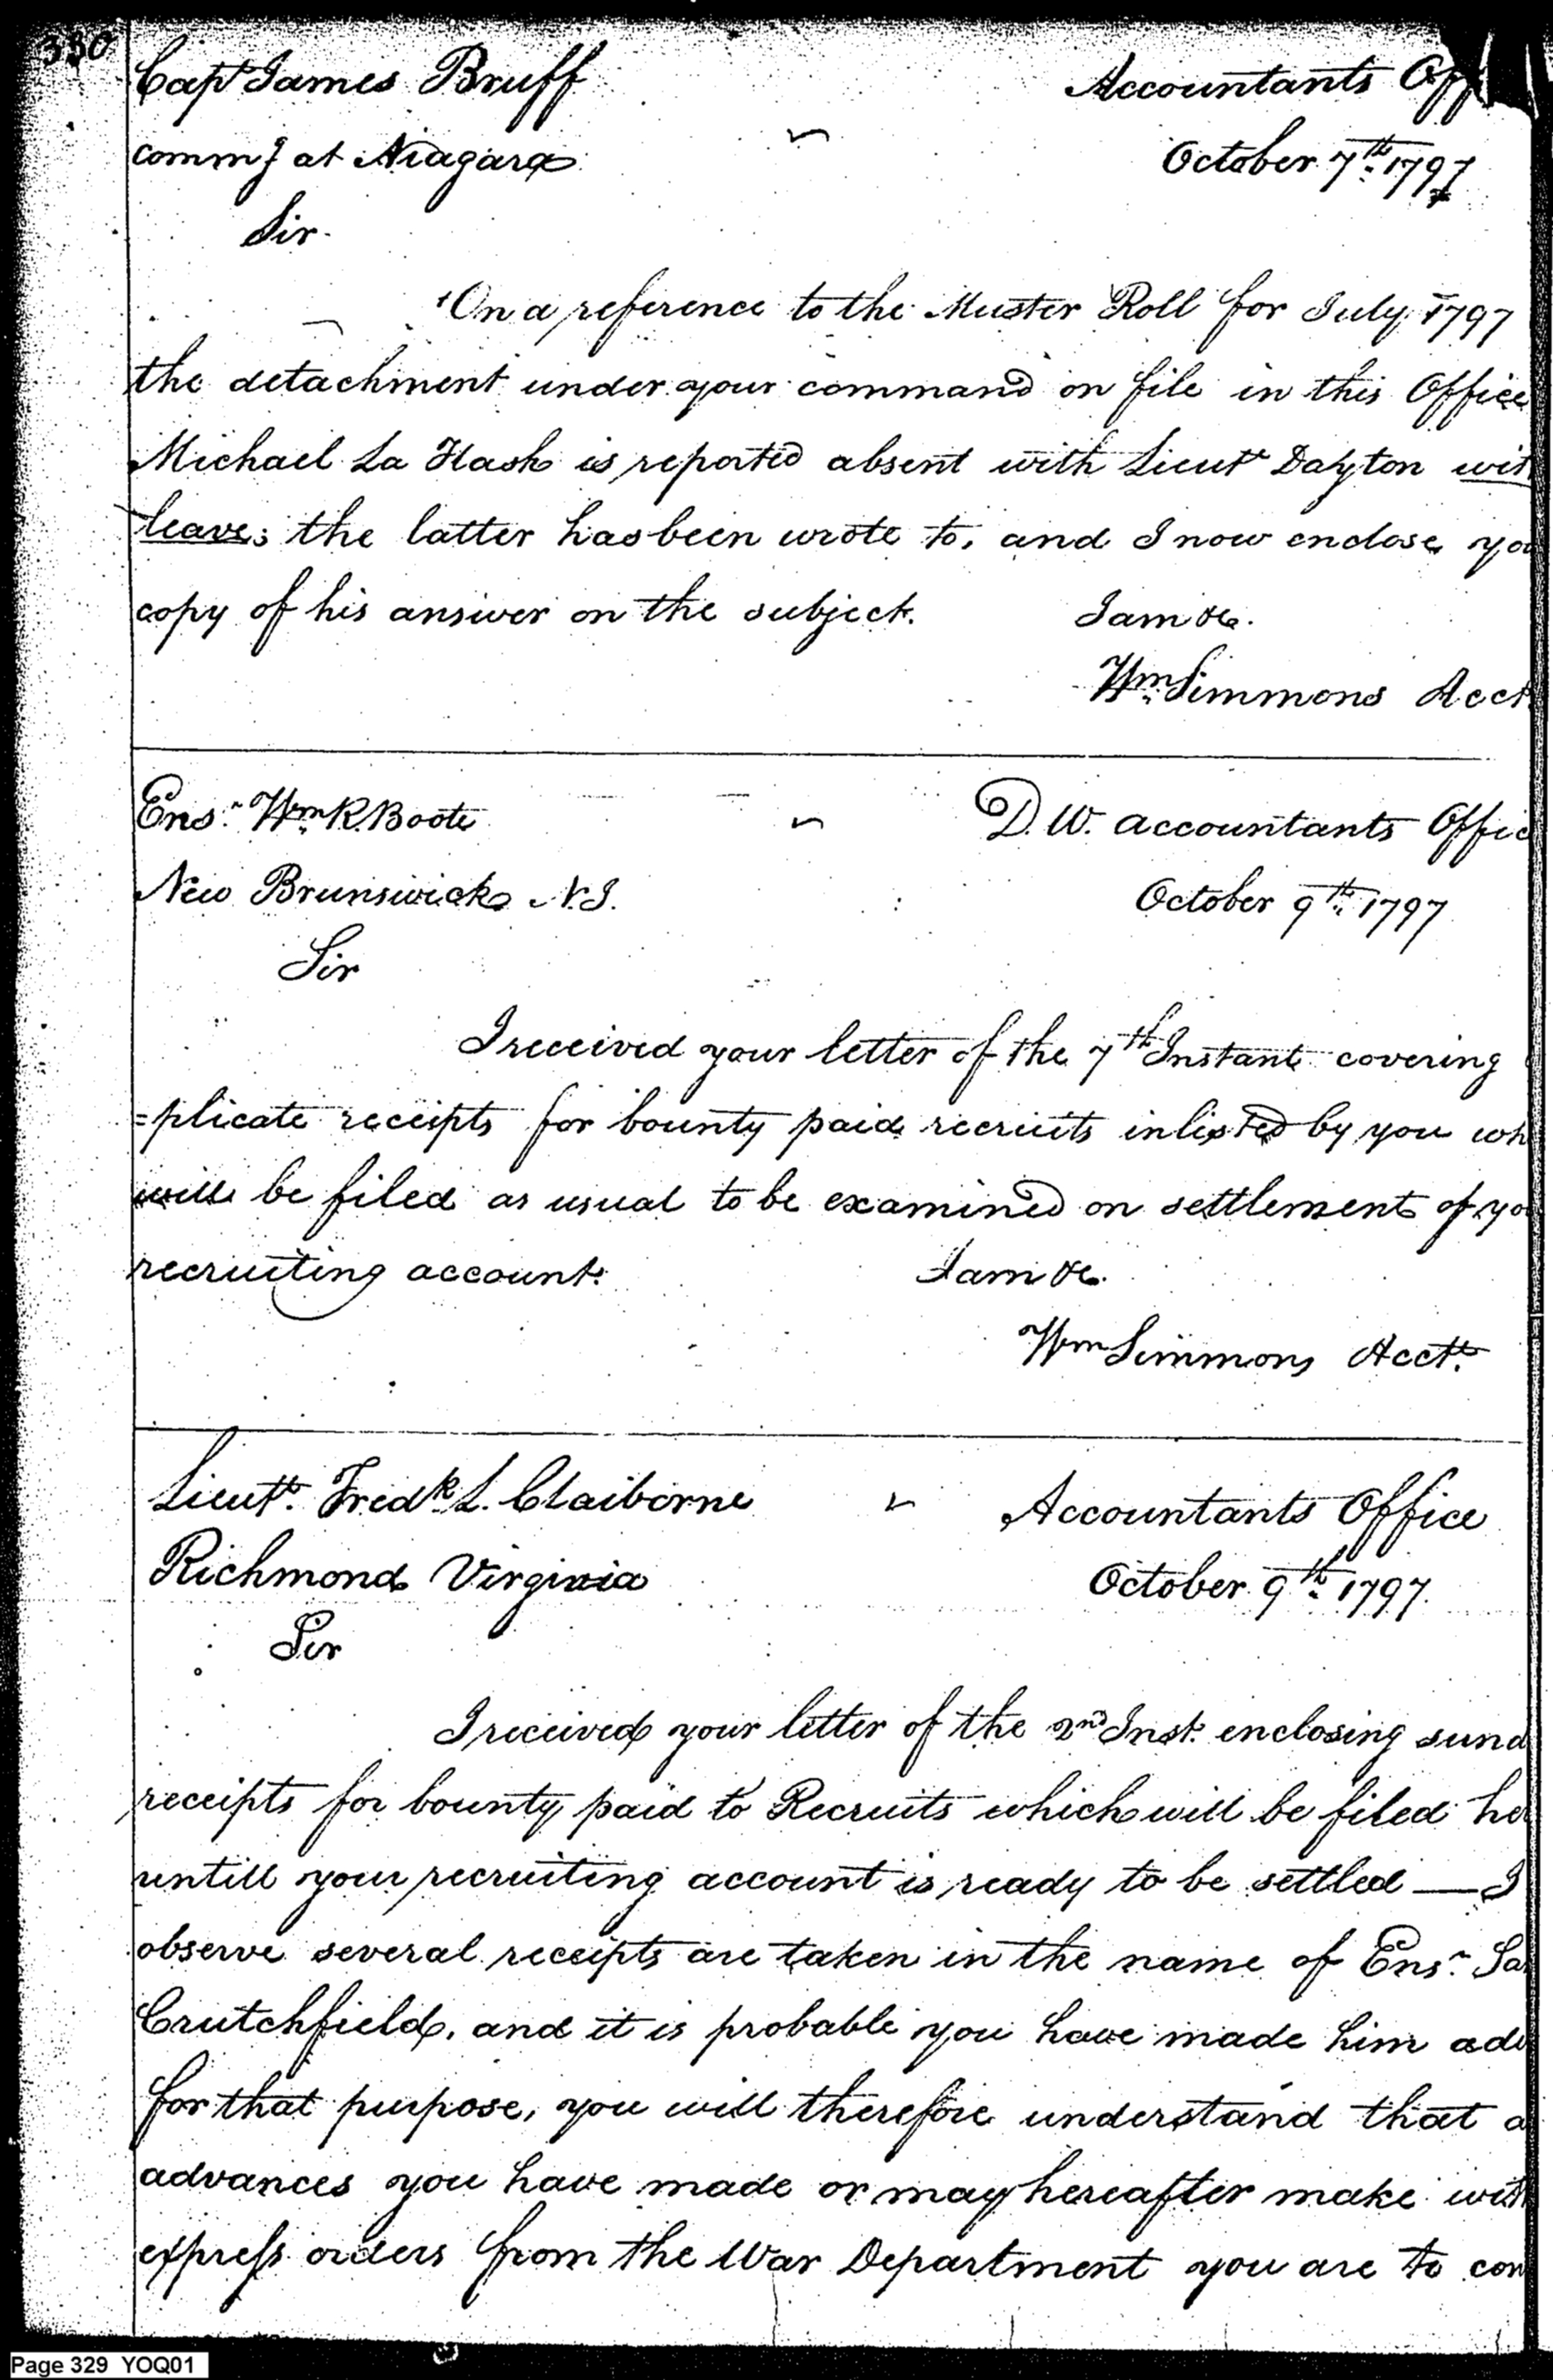 330
Capt James Bruff
Accountants Off
commg at Niagara
October 7th 1797
Sir
On a reference to the Muster Roll for July 1797
the detachment under your command on file in this Office
Michael La Hash is reported absent with Lieut Dayton wit
leave; the latter has been wrote to, and I now enclose yo
copy of his answer on the subject.
I am &c.
Wm Simmons Acct
Ensn Wm R. Boote
D. W. accountants Offic
New Brunswick N.J.
October 9th 1797
Sir
I received your letter of the 7th Instant covering
=plicate receipts for bounty paid recruits inlisted by you wh
will be filed as usual to be examined on settlement of yo
recruiting account.
I am &c.
Wm Simmons Acctt.
Lieutt. Fredk L. Claiborne
Accountants Office
Richmond Virginia
October 9th 1797.
Sir
I received your letter of the 2nd Inst. enclosing sund
receipts for bounty paid to Recruits which will be filed he
untill your recruiting account is ready to be settled — I
observe several receipts are taken in the name of Ensn. Sa
Crutchfield, and it is probable you have made him adv
for that purpose, you will therefore understand that a
advances you have made or may hereafter make wit
express orders from the War Department you are to con
Page 329 YOQ01